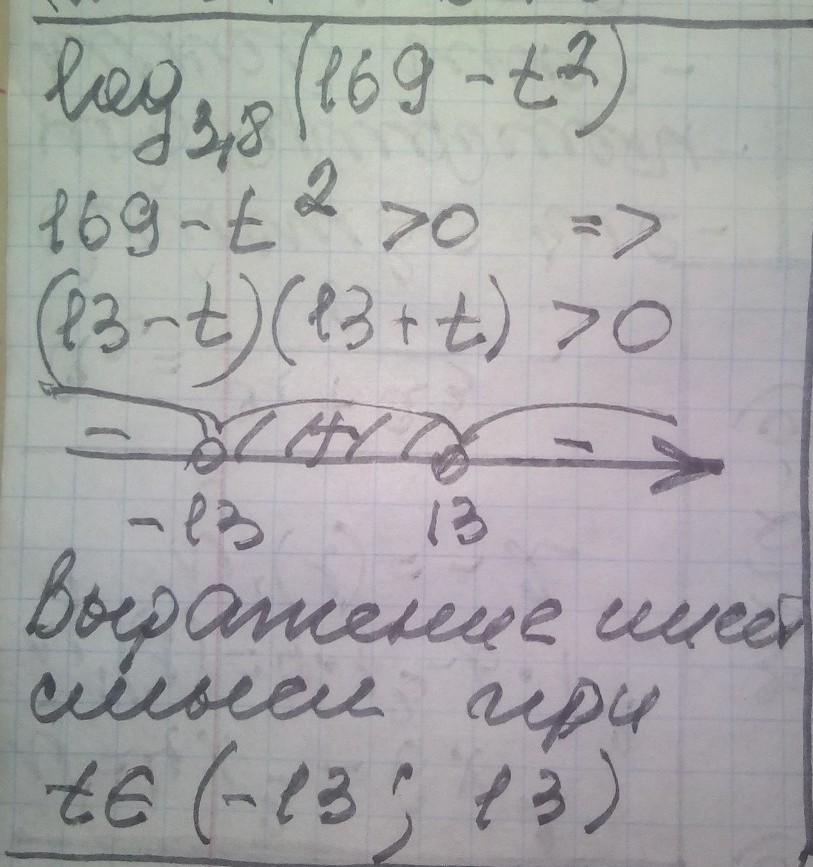 log₃,₈ (169 - t²)
169 - t² > 0 =>
(13 - t)(13 + t) > 0
- + -
-13 13
Выражение имеет
смысл при
t∈ (-13; 13)